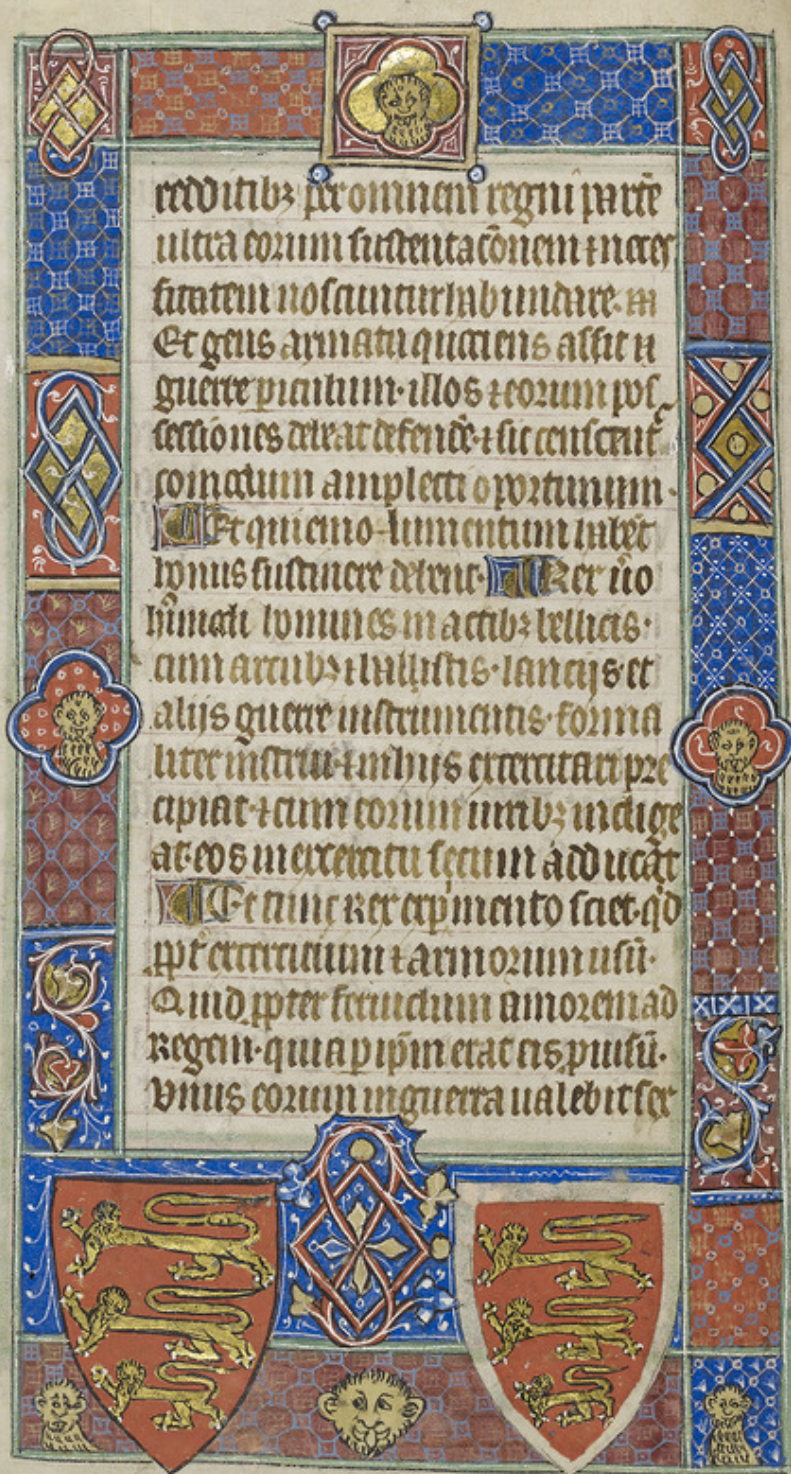 redditibꝫ per omnem regni parte
ultra eorum sustentacōnem ⁊ neces
sitatem noscuntur habundare. in
Et gens armata quociens assit n
guerre piculum· illos ⁊ eorum pos
sessiones deleat defendē· ⁊ sic censeut
comodum amplecti oportunum·
Et qui emolumentum habēt
honus sustinere debent· Rex ūo
hōies in actibꝫ bellicis·
cum arcubꝫ ⁊ ballistis· lancijs et
alijs guerre instrumentis· forma
liter instrui· ⁊ in hijs excercitari pre
cipiat· ⁊ cum eorum uiribꝫ indige
at· eos in exercitu secum adducāt
Et tunc Rex expimento sciet· qd
ppt excercicium ⁊ armorum usū·
Quid ppter feruidum amorem ad
Regem· quia p ipm erat eis puisū·
Vnus eorum in guerra ualebit sex